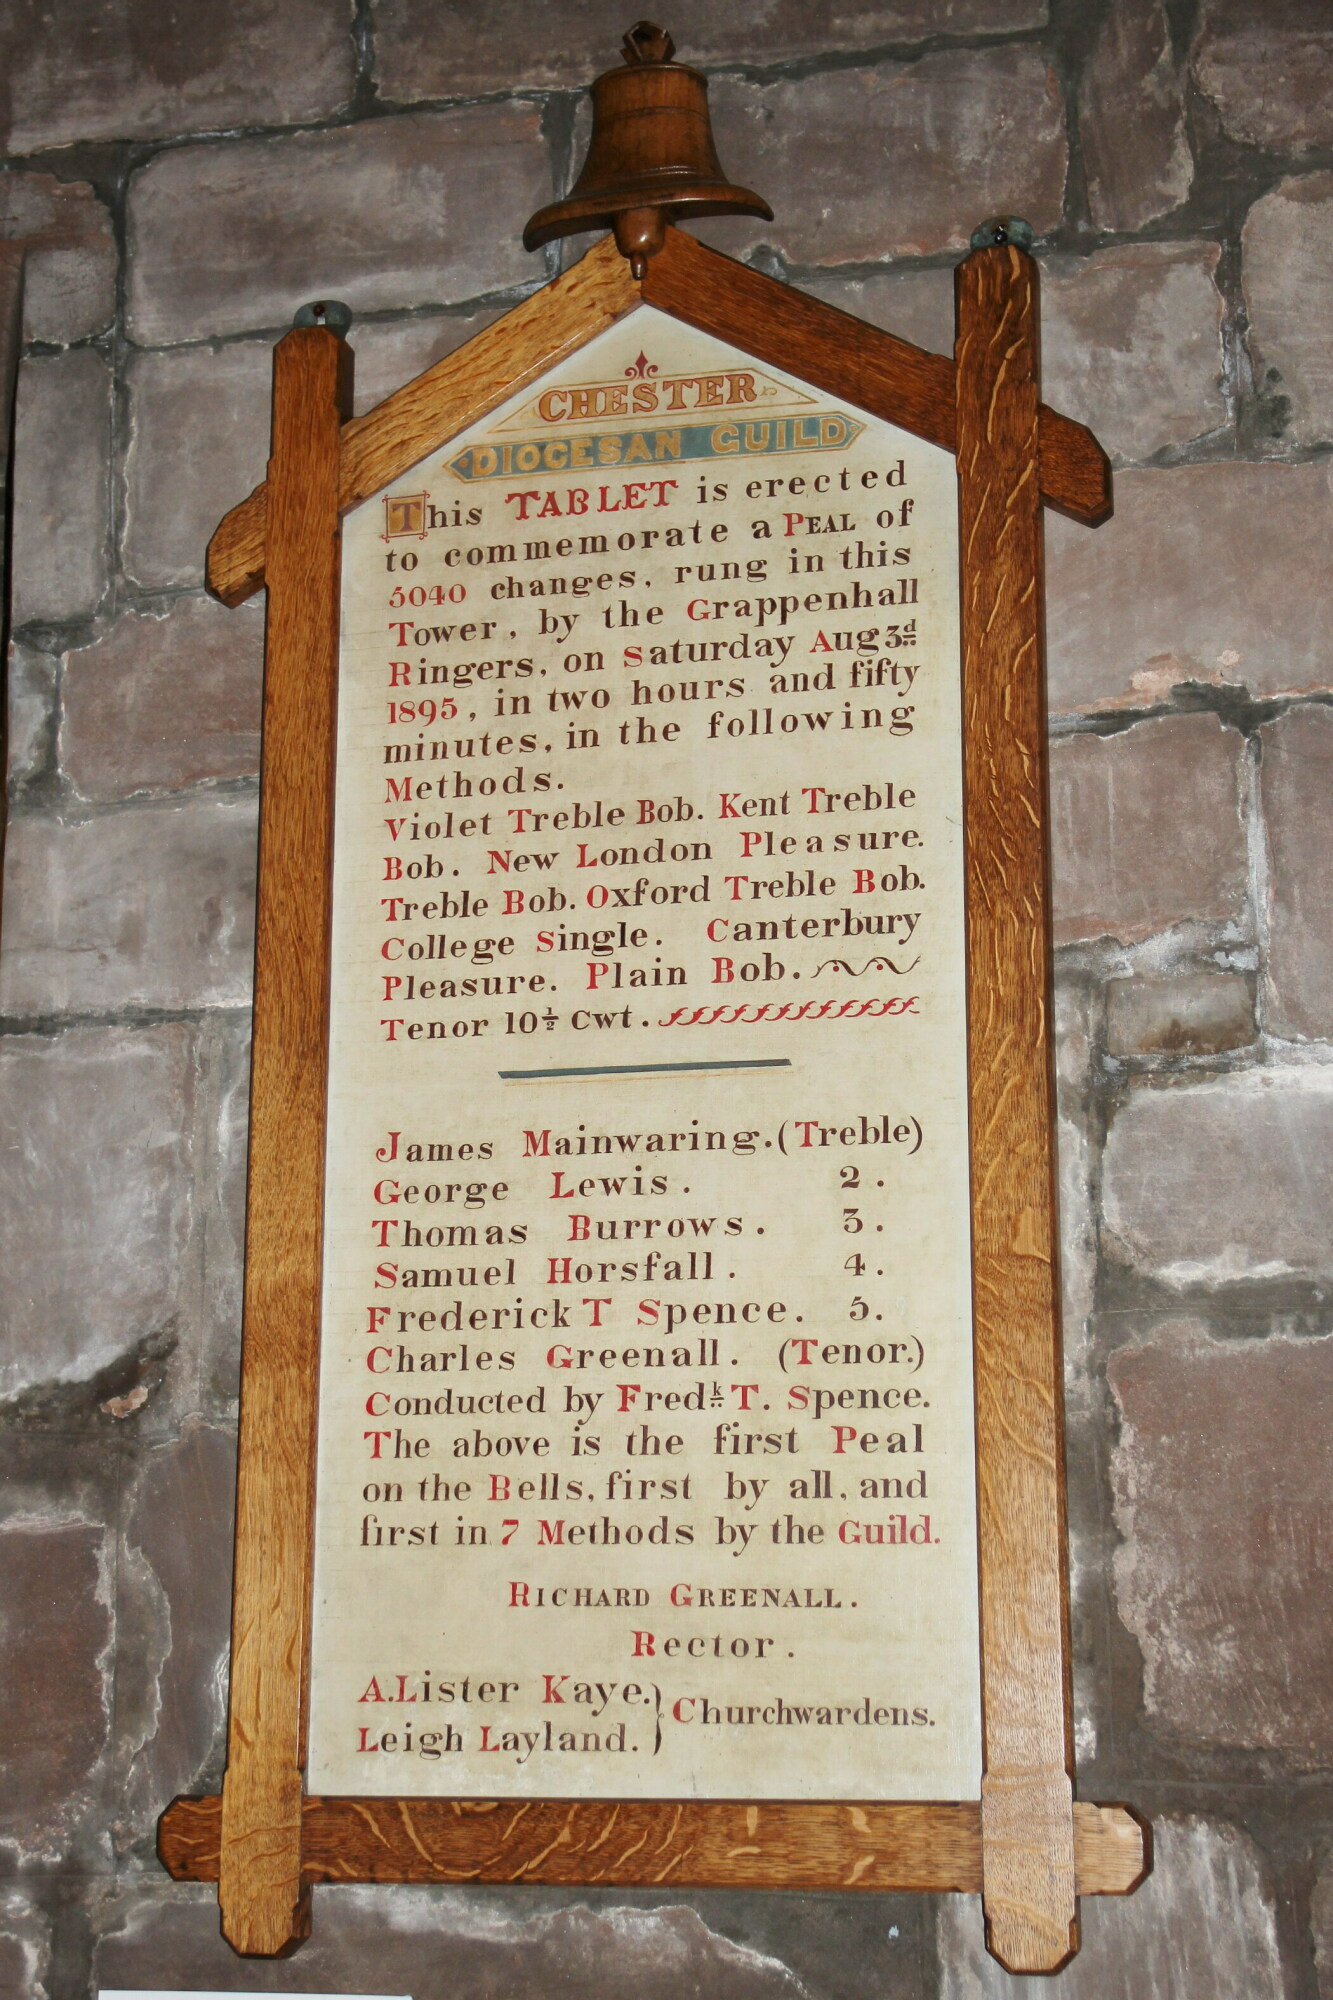 CHESTER
DIOCESAN GUILD
This TABLET is erected
to commemorate a PEAL of
5040 changes, rung in this
Tower, by the Grappenhall
Ringers, on Saturday Aug 3d
1895, in two hours and fifty
minutes, in the following
Methods.
Violet Treble Bob. Kent Treble
Bob. New London Pleasure.
Treble Bob. Oxford Treble Bob.
College Single. Canterbury
Pleasure. Plain Bob.
Tenor 10½ Cwt.
James Mainwaring. (Treble)
George Lewis. 2.
Thomas Burrows. 3.
Samuel Horsfall. 4.
Frederick T Spence. 5.
Charles Greenall. (Tenor.)
Conducted by Fredk T. Spence.
The above is the first Peal
on the Bells, first by all, and
first in 7 Methods by the Guild.
RICHARD GREENALL.
Rector.
A. Lister Kaye. } Churchwardens.
Leigh Layland.